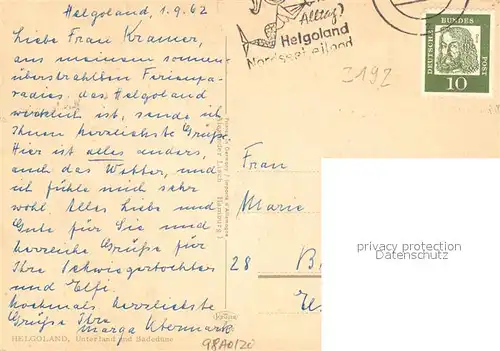 Helgoland, 1.9.62
Liebe Frau Kramer,
aus meinem sonnen-
überstrahlten Ferienpa-
radies, das Helgoland
wirklich ist, sende ich
Ihnen herzlichste Grüße.
Hier ist alles anders,
auch das Wetter, und
ich fühle mich sehr
wohl. Alles Liebe und
Gute für Sie und
herzliche Grüße für
Ihre Schwiegertochter
und Elfi.
Nochmals herzlichste
Grüße Ihre
Marga
HELGOLAND, Unterland und Badedüne
Alltag?
Helgoland
Nordseeheilbad
3192
DEUTSCHE BUNDES
POST
10
Frau
Marie
28
privacy protection
98A0120